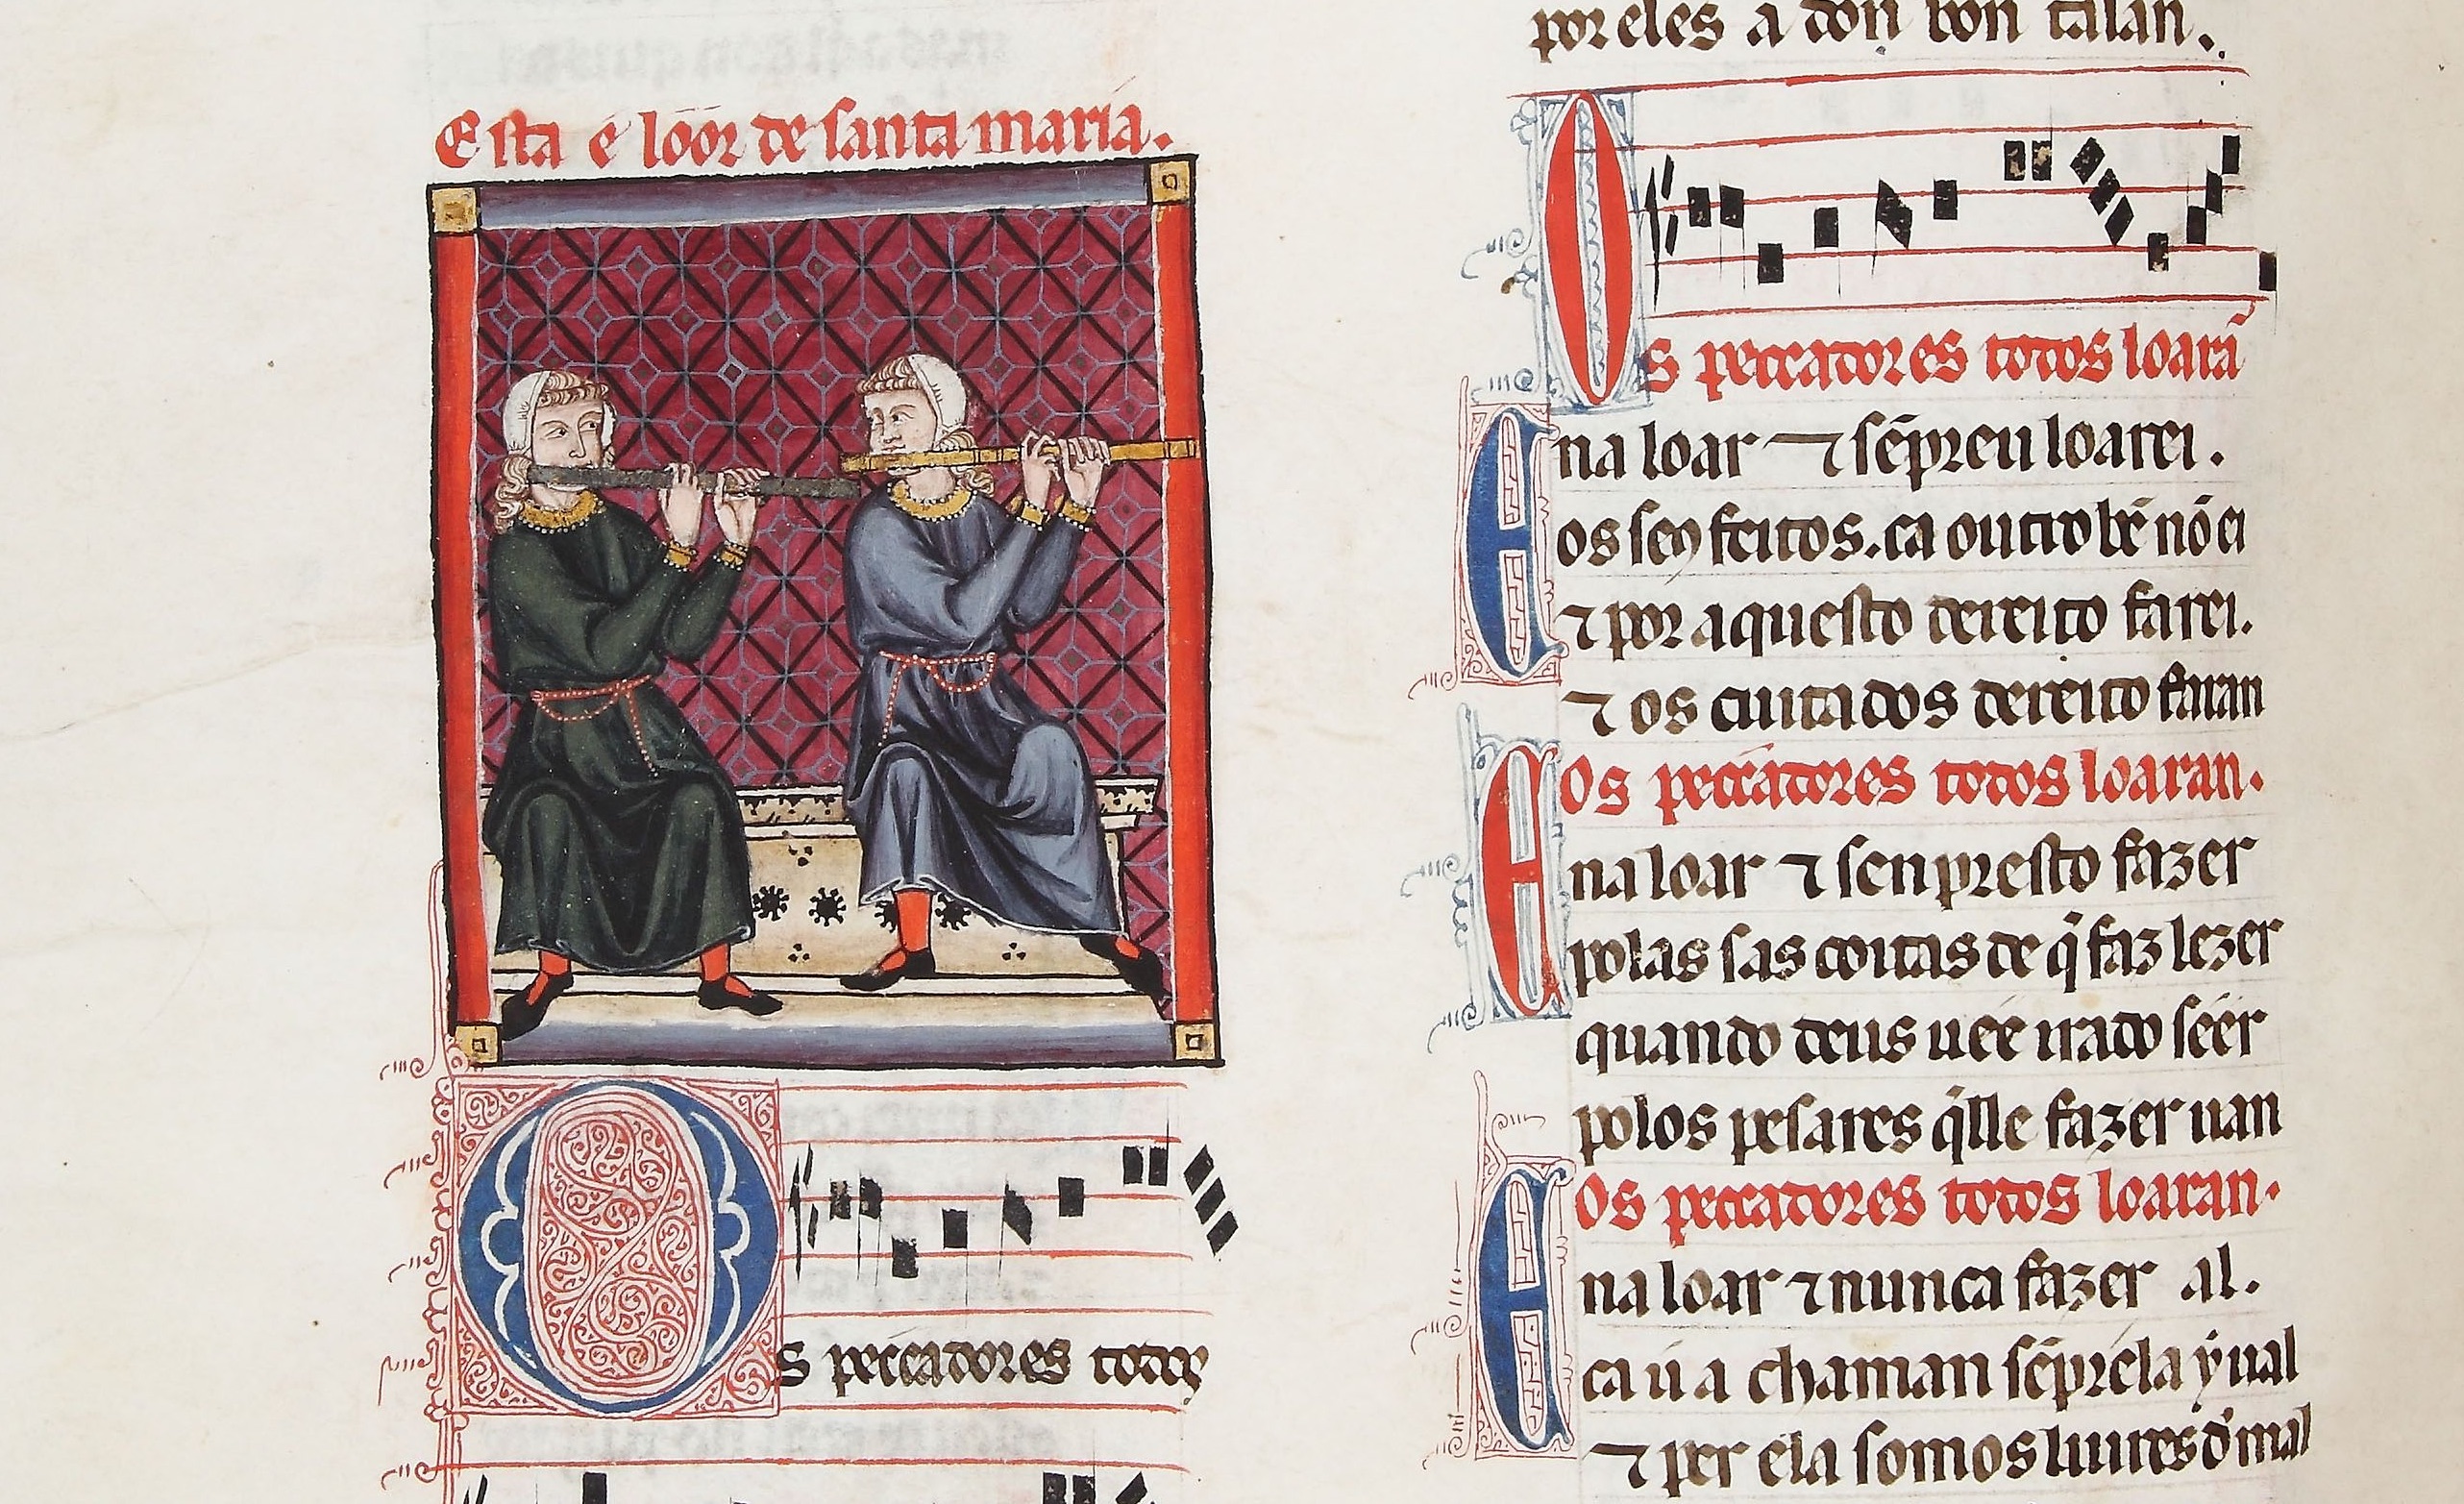 Esta é lóor de santa maria.
Os peccadores todos
por eles a don bon talan.
Os peccadores todos loarã
Ena loar ⁊ sẽpreu loarei.
os seꝯ feitos. ca outro bẽ nõ ei
⁊ por aquesto dereito farei.
⁊ os cuitados dereito faran
Os peccadores todos loaran.
Ena loar ⁊ senpresto fazer
polas sas coitas de q̃ faz lezer
quando deus uéé irado séér
polos pesares q̃lle fazer uan
Os peccadores todos loaran.
Ena loar ⁊ nunca fazer al.
ca ú a chaman sẽpréla ẏ ual
⁊ per ela somos liures d'mal